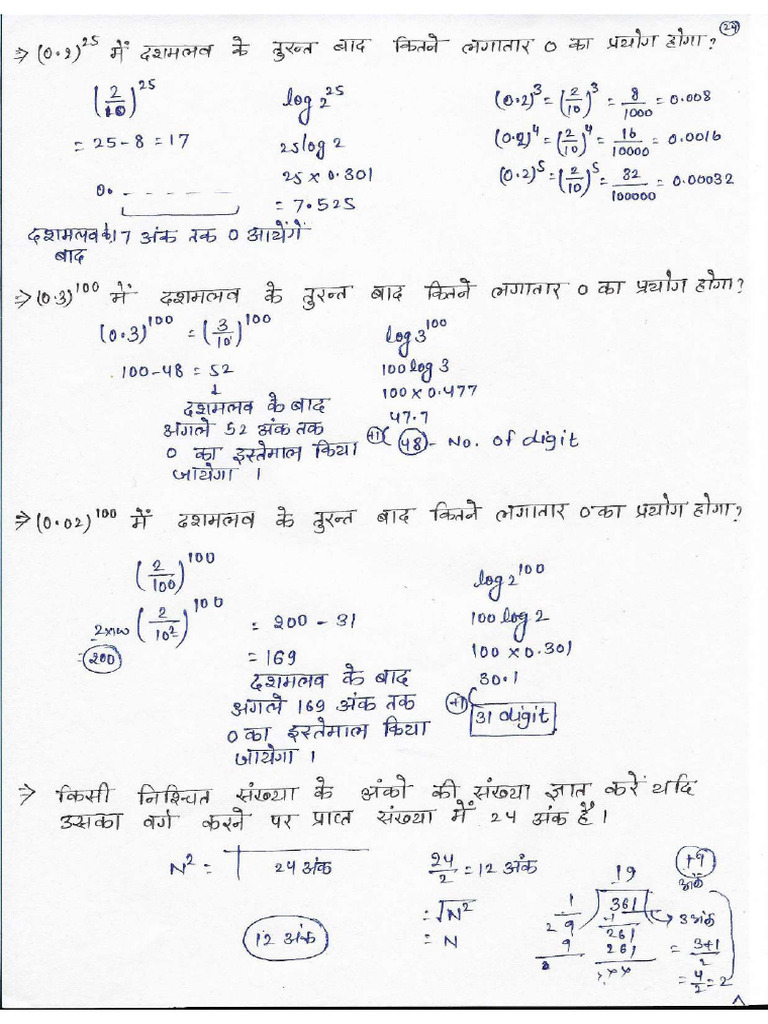 (24)
⇒ (0.2)^25 में दशमलव के तुरन्त बाद कितने लगातार 0 का प्रयोग होगा?
(2/10)^25
= 25-8 = 17
0. - - - - - - -
दशमलव के 17 अंक तक 0 आयेंगें
बाद
log 2^25
25 log 2
25 × 0.301
= 7.525
(0.2)^3 = (2/10)^3 = 8/1000 = 0.008
(0.2)^4 = (2/10)^4 = 16/10000 = 0.0016
(0.2)^5 = (2/10)^5 = 32/100000 = 0.00032
⇒ (0.3)^100 में दशमलव के तुरन्त बाद कितने लगातार 0 का प्रयोग होगा?
(0.3)^100 = (3/10)^100
100-48 = 52
↓
दशमलव के बाद
अगले 52 अंक तक
0 का इस्तेमाल किया
जायेगा ।
log 3^100
100 log 3
100 × 0.477
47.7
+1 (48) - No. of digit
⇒ (0.02)^100 में दशमलव के तुरन्त बाद कितने लगातार 0 का प्रयोग होगा?
(2/100)^100
(2/10^2)^100 = 200 - 31
= (200)
= 169
दशमलव के बाद
अगले 169 अंक तक
0 का इस्तेमाल किया
जायेगा ।
log 2^100
100 log 2
100 × 0.301
30.1
+1 31 digit
⇒ किसी निश्चित संख्या के अंको की संख्या ज्ञात करें यदि
उसका वर्ग करने पर प्राप्त संख्या में 24 अंक है ।
N² = 24 अंक
(12 अंक)
24/2 = 12 अंक
= √N²
= N
19
1 361 → 3 अंक
1
29 261
9 261
×××
= 3+1/2
= 4/2 = 2